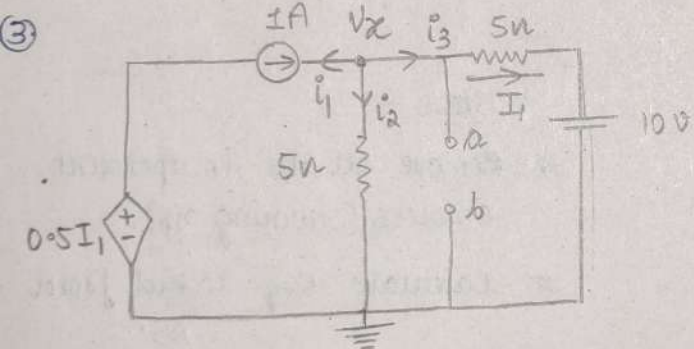 ③
1A Vx i3 5Ω
i1 i2 I1
10V
5Ω a
b
0.5I1 + -